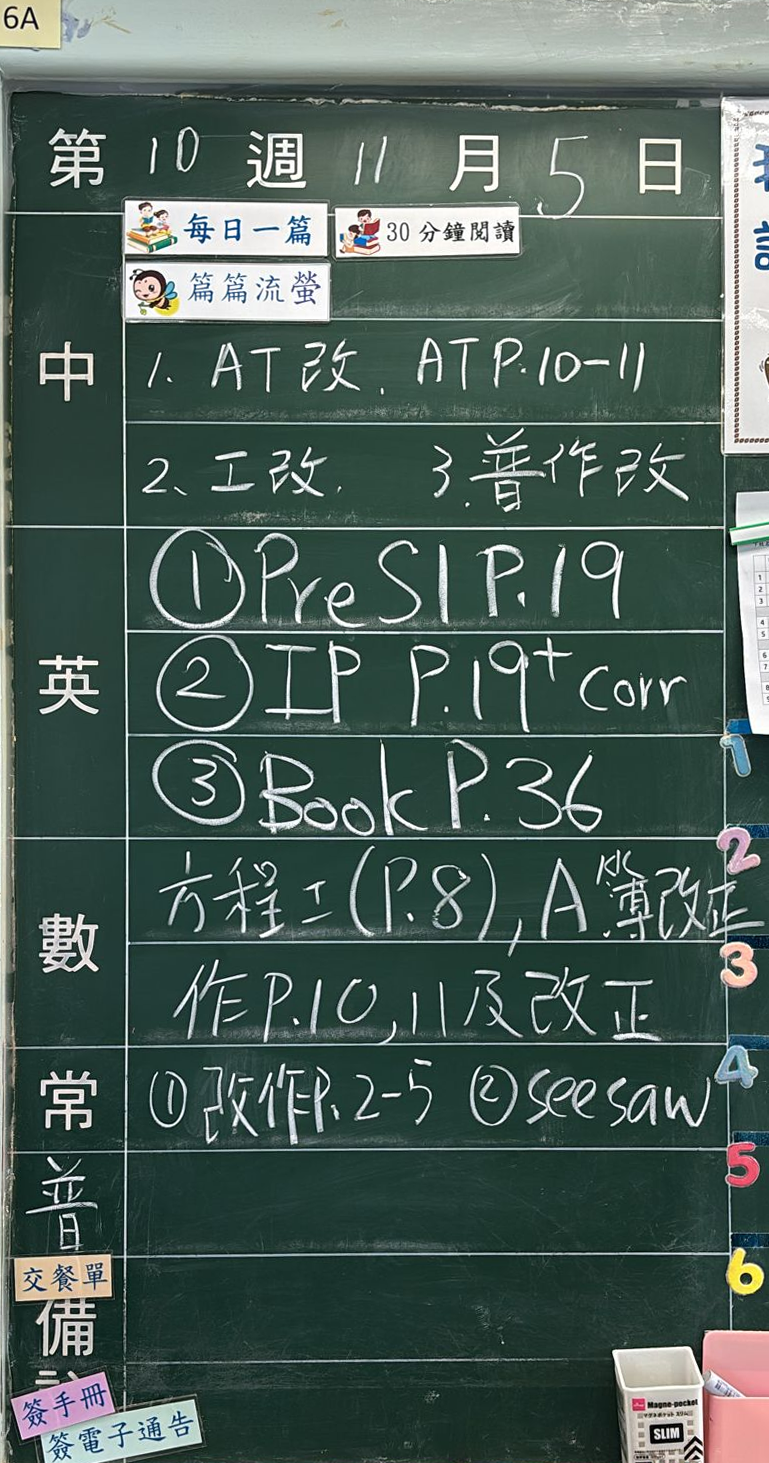 6A
第 10 週 11 月 5 日
每日一篇 30分鐘閱讀
篇篇流螢
中
1. AT改. AT P.10-11
2、工改. 3.普作改
英
① Pre S1 P.19
② IP P.19+ corr
③ Book P.36
數
方程工(P.8), A簿改正
作P.10,11及改正
常
①改作P.2-5 ②seesaw
普
交餐單
備
簽手冊
簽電子通告
1
2
3
4
5
6
Magne-pocket
SLIM